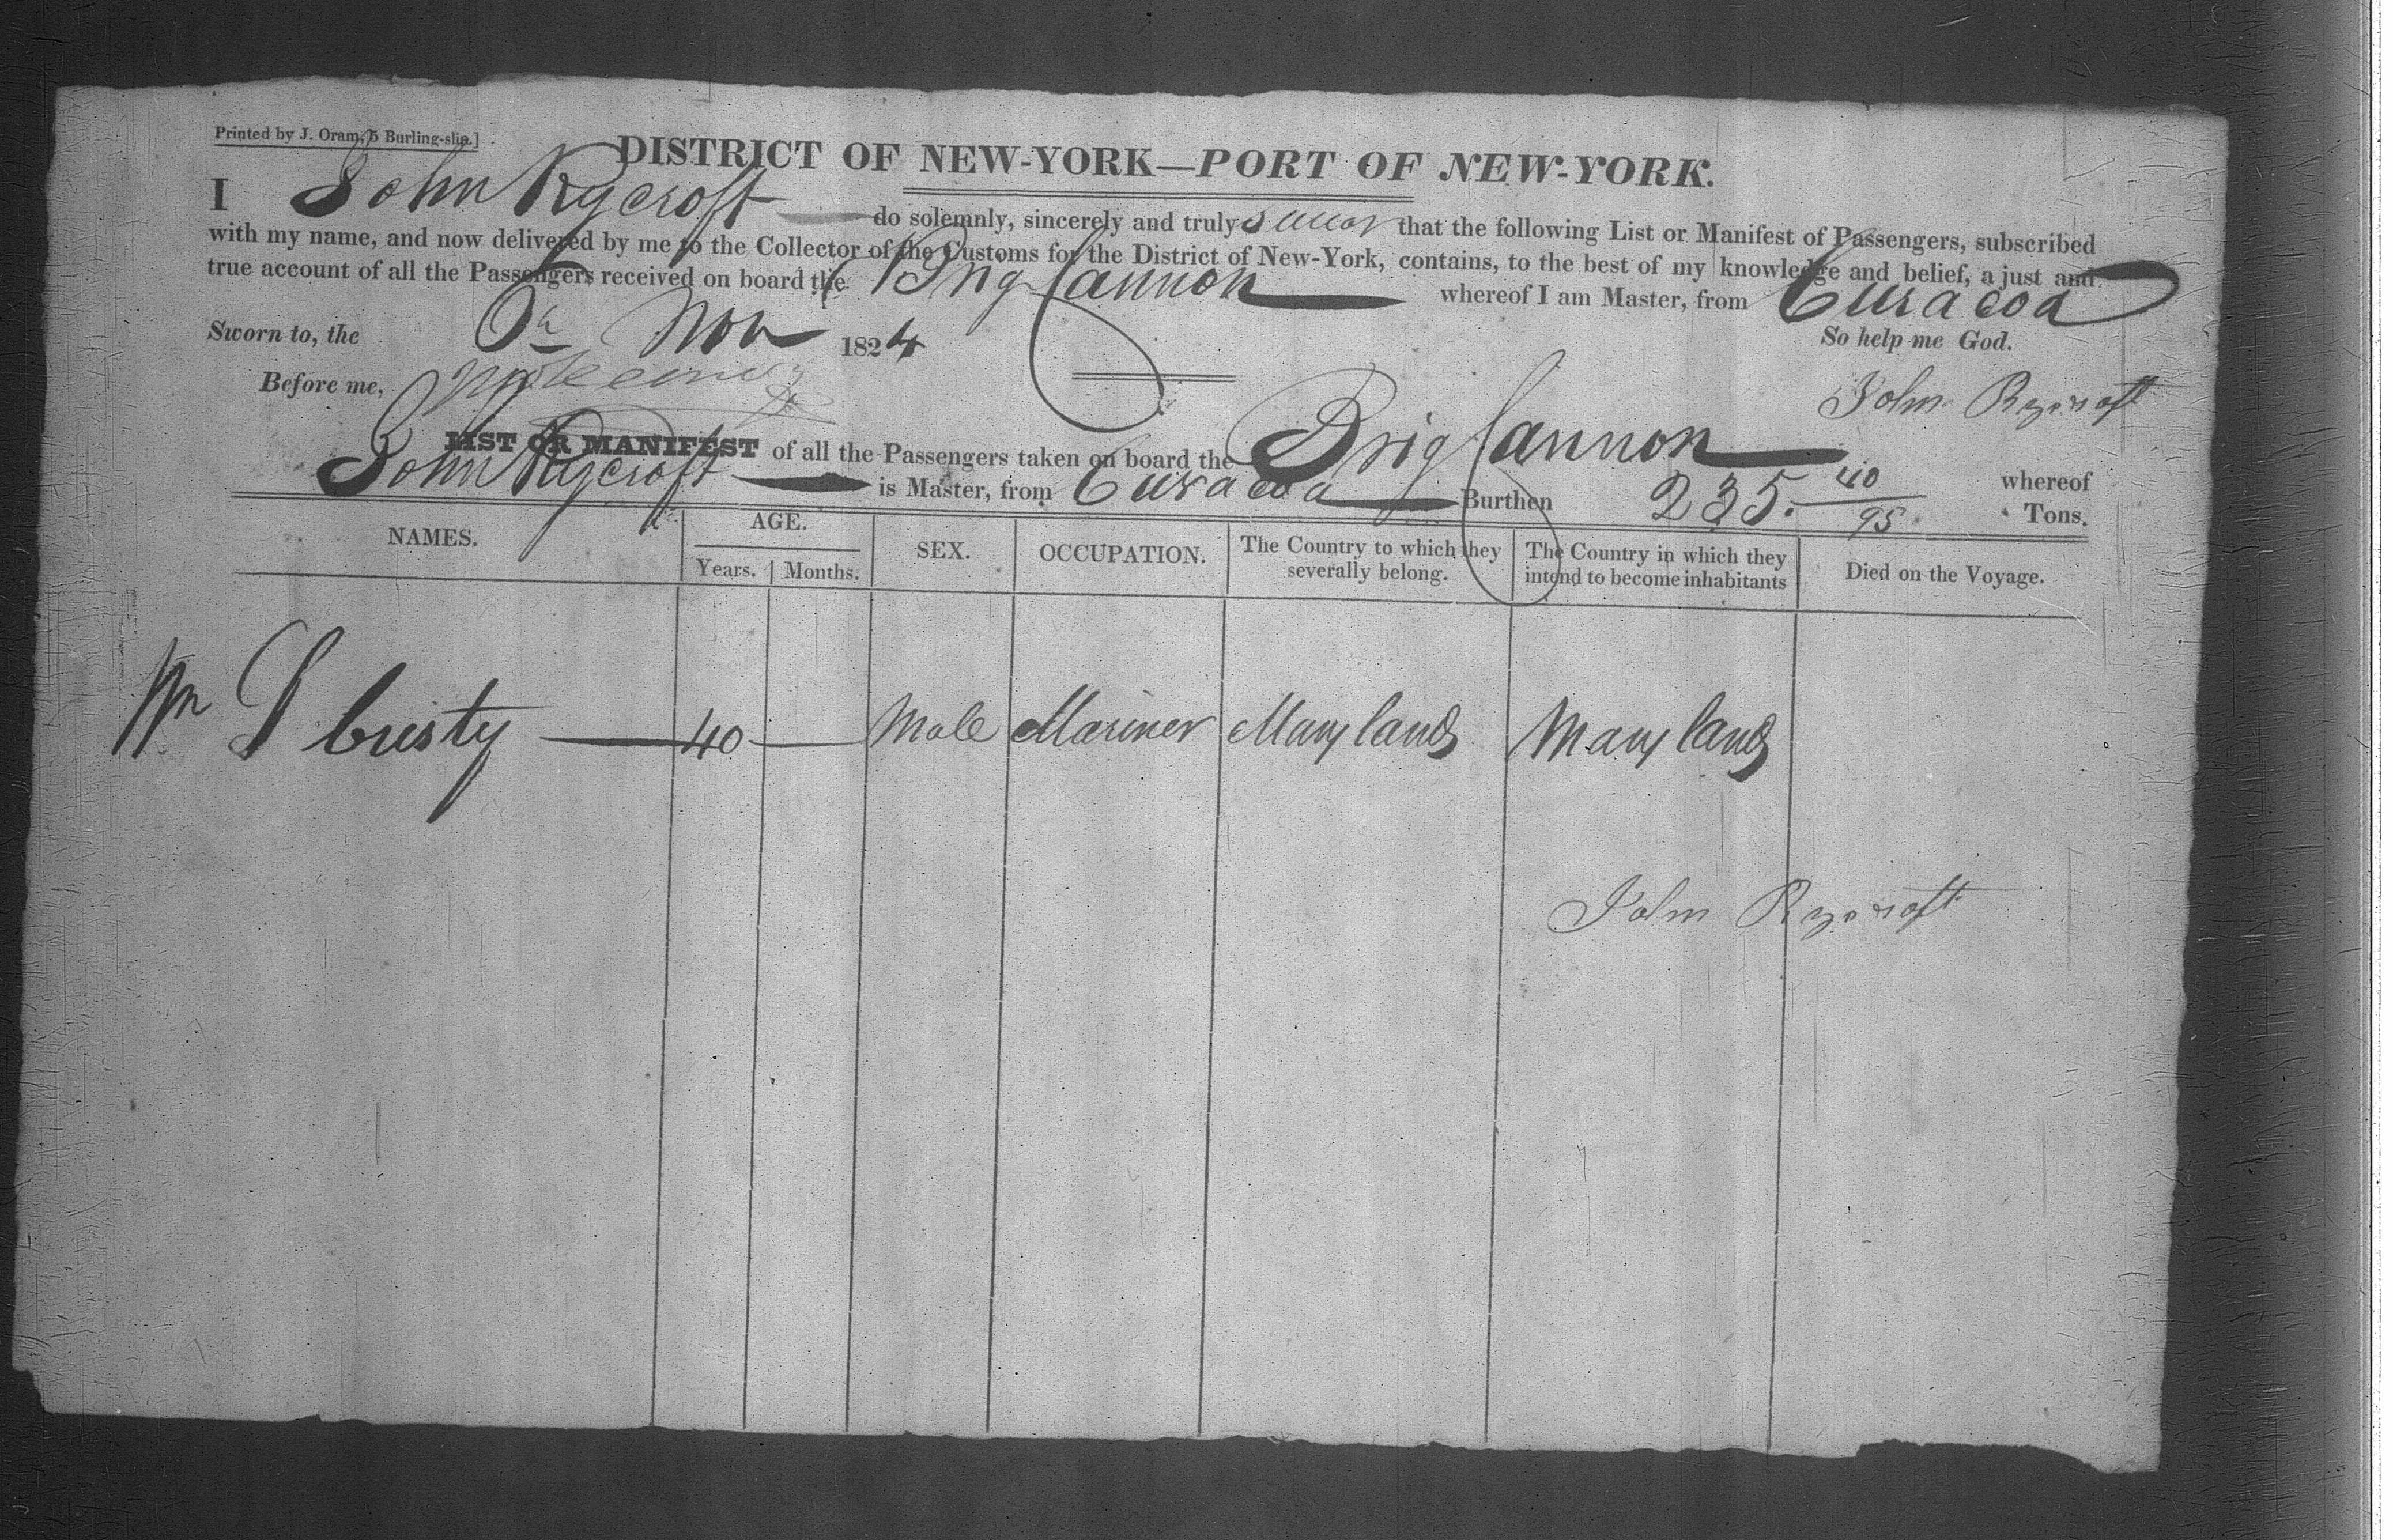 Printed by J. Oram, 5 Burling-slip.]
DISTRICT OF NEW-YORK—PORT OF NEW-YORK.
I John Rycroft do solemnly, sincerely and truly swear that the following List or Manifest of Passengers, subscribed
with my name, and now delivered by me to the Collector of the Customs for the District of New-York, contains, to the best of my knowledge and belief, a just and
true account of all the Passengers received on board the Brig Cannon whereof I am Master, from Curacoa
Sworn to, the Nov 1824 So help me God.
Before me, John Rycroft
LIST OR MANIFEST of all the Passengers taken on board the Brig Cannon whereof
John Rycroft is Master, from Curacoa Burthen 235. 40/95 Tons.
NAMES. AGE. SEX. OCCUPATION. The Country to which they severally belong. The Country in which they intend to become inhabitants Died on the Voyage.
Years. Months.
Wm 40 Male Mariner Maryland Maryland
John Rycroft